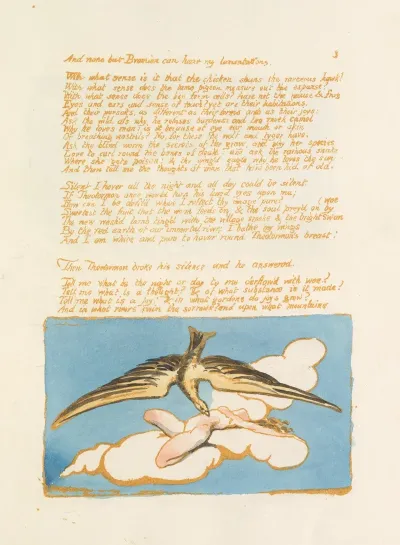 3
And none but Bromion can hear my lamentations.
With what sense is it that the chicken shuns the ravenous hawk?
With what sense does the tame pigeon measure out the expanse?
With what sense does the bee form cells? have not the mouse & frog
Eyes and ears and sense of touch? yet are their habitations.
And their pursuits, as different as their forms and as their joys:
Ask the wild ass why he refuses burdens: and the meek camel
Why he loves man: is it because of eye ear mouth or skin
Or breathing nostrils? No. for these the wolf and tyger have.
Ask the blind worm the secrets of the grave, and why her spires
Love to curl round the bones of death; and ask the rav'nous snake
Where she gets poison: & the wing'd eagle why he loves the sun
And then tell me the thoughts of man, that have been hid of old.
Silent I hover all the night, and all day could be silent.
If Theotormon once would turn his loved eyes upon me;
How can I be defild when I reflect thy image pure? (woe
Sweetest the fruit that the worm feeds on. & the soul prey'd on by
The new wash'd lamb ting'd with the village smoke & the bright swan
By the red earth of our immortal river: I bathe my wings.
And I am white and pure to hover round Theotormons breast.
Then Theotormon broke his silence. and he answered.
Tell me what is the night or day to one o'erflowd with woe?
Tell me what is a thought? & of what substance is it made?
Tell me what is a joy? & in what gardens do joys grow?
And in what rivers swim the sorrows? and upon what mountains